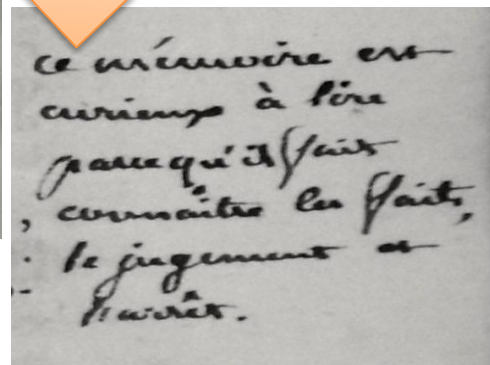 ce mémoire est
curieux à lire
parcequ'il fait
connaitre les faits,
le jugement et
l'arrêt.